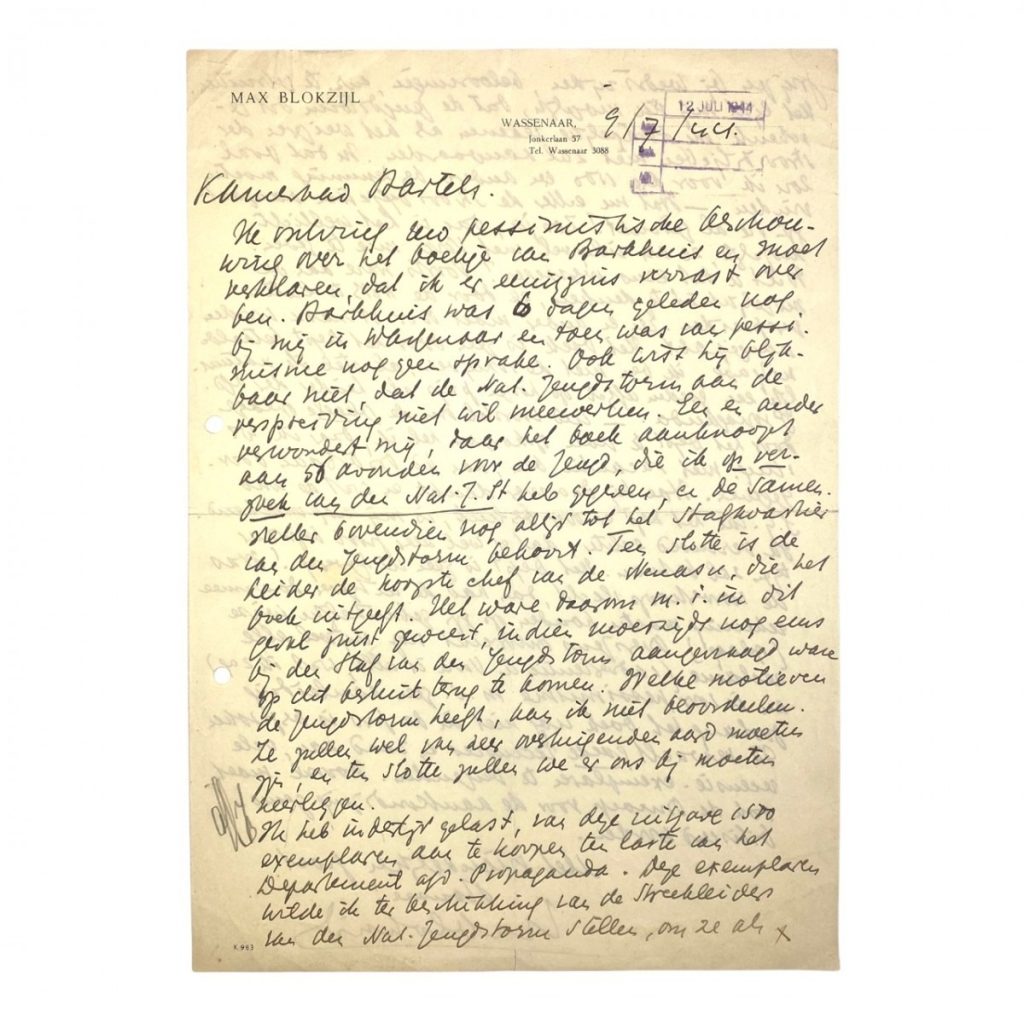 MAX BLOKZIJL
WASSENAAR,
Jonkerlaan 57
Tel. Wassenaar 3088
9/7/44.
12 JULI 1944
Kameraad Bartels.
Ik ontving uw pessimistische beschou-
wing over het boekje van Barkhuis en moet
verklaren, dat ik er eenigzins verrast over
ben. Barkhuis was 6 dagen geleden nog
bij mij in Wassenaar en toen was van pessi-
misme nog geen sprake. Ook wist hij blijk-
baar niet, dat de Nat. Jeugdstorm aan de
verspreiding niet wil meewerken. Een en ander
verwondert mij, daar het boek aanknoopt
aan 50 avonden voor de Jeugd, die ik op ver-
zoek van den Nat. J. St heb gegeven, en de samen-
steller bovendien nog altijd tot het Stafkwartier
van den Jeugdstorm behoort. Ten slotte is de
Leider de hoogste chef van de Nenasu, die het
boek uitgeeft. Het ware daarom m.i. in dit
geval juist geweest, indien moezijds nog eens
bij den Staf van den Jeugdstorm aangevraagd ware
op dit besluit terug te komen. Welke motieven
de Jeugdstorm heeft, kan ik niet beoordeelen.
Ze zullen wel van zeer overtuigenden aard moeten
zijn, en ten slotte zullen we er ons bij moeten
neerleggen.
Ik heb indertijd gelast, van deze uitgave 1500
exemplaren aan te koopen ten laste van het
Departement afd. Propaganda. Deze exemplaren
wilde ik ter beschikking van de Streekleiders
van den Nat. Jeugdstorm stellen, om ze als x
K 983